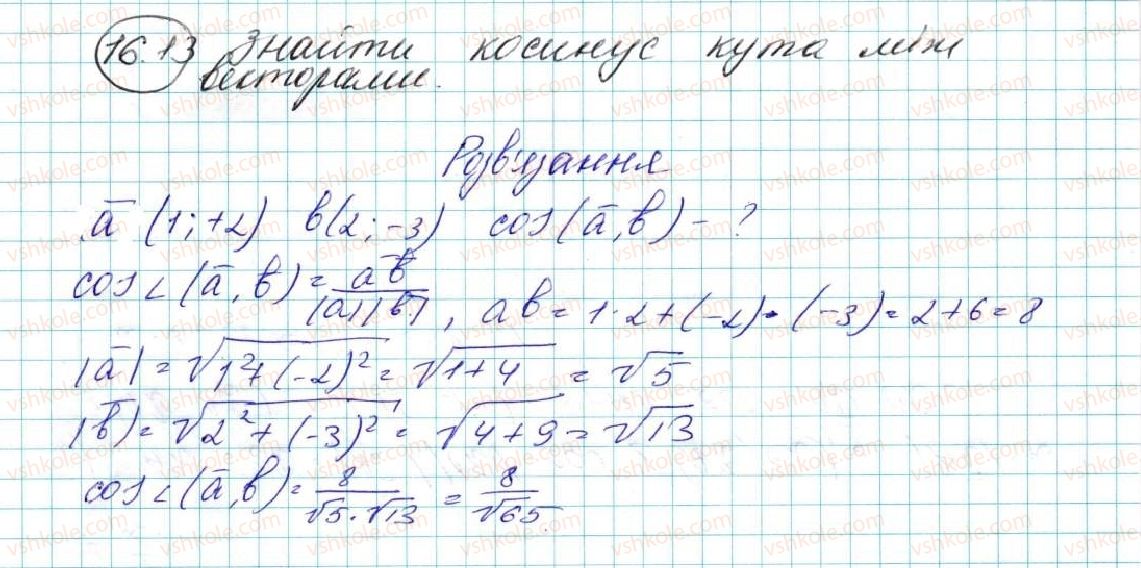 16.13 Знайти косинус кута між
векторами.
Розв'язання
a̅ (1; +2) b(2; -3) cos(a̅, b) - ?
cos∠(a̅, b) = a̅b̅ / |a̅||b̅|, ab = 1·2+(-2)·(-3) = 2+6 = 8
|a̅| = √(1²+(-2)²) = √(1+4) = √5
|b̅| = √(2²+(-3)²) = √(4+9) = √13
cos∠(a̅, b) = 8/(√5·√13) = 8/√65